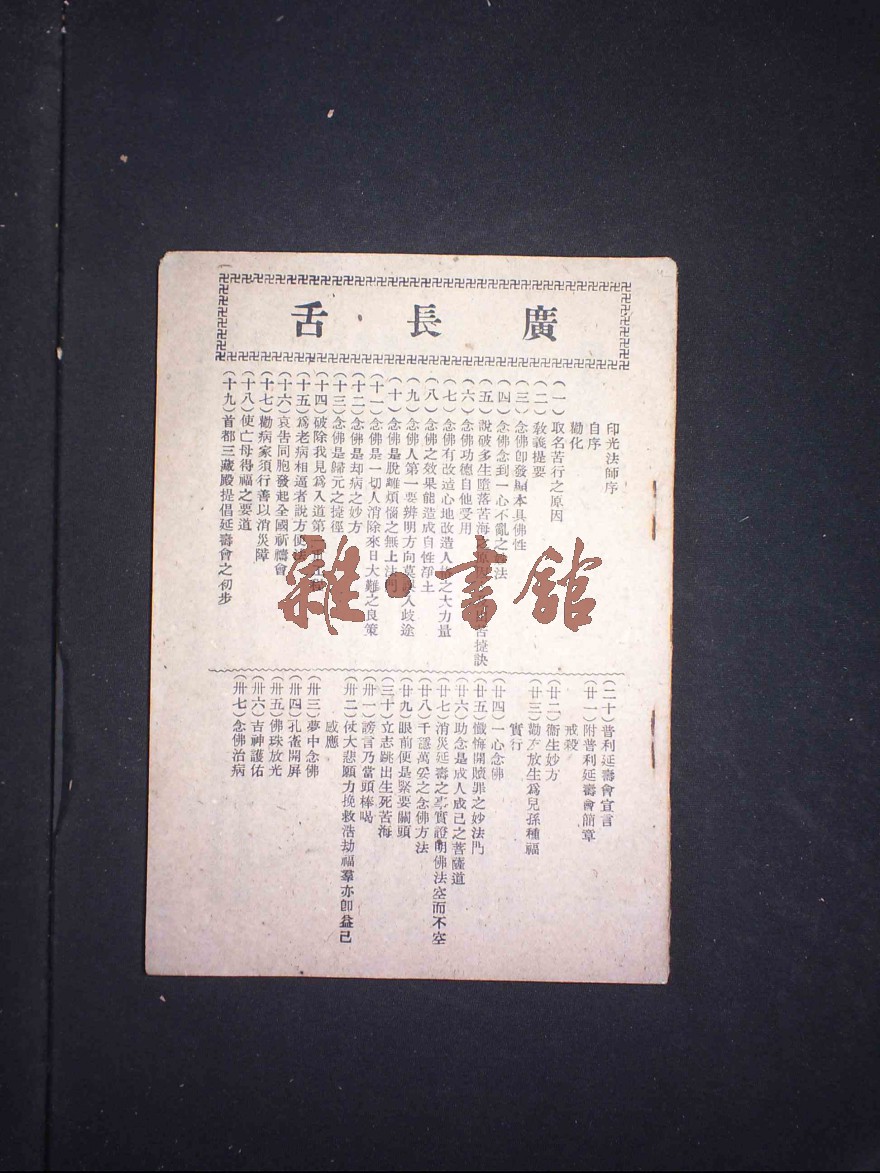 廣長舌
印光法師序
自序
勸化
(一)取名苦行之原因
(二)教義提要
(三)念佛卽發顯本具佛性
(四)念佛念到一心不亂之法
(五)說破多生墮落苦海苦捷訣
(六)念佛功德自他受用
(七)念佛有改造心地改造人之大力量
(八)念佛之效果能造成自性淨土
(九)念佛人第一要辨明方向莫入歧途
(十)念佛是脫離煩惱之無上法門
(十一)念佛是一切人消除來日大難之良策
(十二)念佛是却病之妙方
(十三)念佛是歸元之捷徑
(十四)破除我見爲入道第一
(十五)爲老病相逼者說方便法
(十六)哀告同胞發起全國祈禱會
(十七)勸病家須行善以消災障
(十八)使亡母得福之要道
(十九)首都三藏殿提倡延壽會之初步
(二十)普利延壽會宣言
(廿一)附普利延壽會簡章
戒殺
(廿二)衞生妙方
(廿三)勸友放生爲兒孫種福
實行
(廿四)一心念佛
(廿五)懺悔開贖罪之妙法門
(廿六)助念是成人成己之菩薩道
(廿七)消災延壽之事實證明佛法空而不空
(廿八)千穩萬妥之念佛方法
(廿九)眼前便是緊要關頭
(三十)立志跳出生死苦海
(卅一)謗言乃當頭棒喝
(卅二)仗大悲願力挽救浩劫福羣亦卽益己
感應
(卅三)夢中念佛
(卅四)孔雀開屏
(卅五)佛珠放光
(卅六)吉神護佑
(卅七)念佛治病
雜·書館